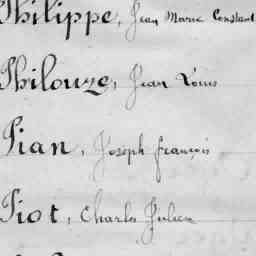 Philippe, Jean Marie Constant
Philouze, Jean Louis
Pian, Joseph françois
Piot, Charles Julien